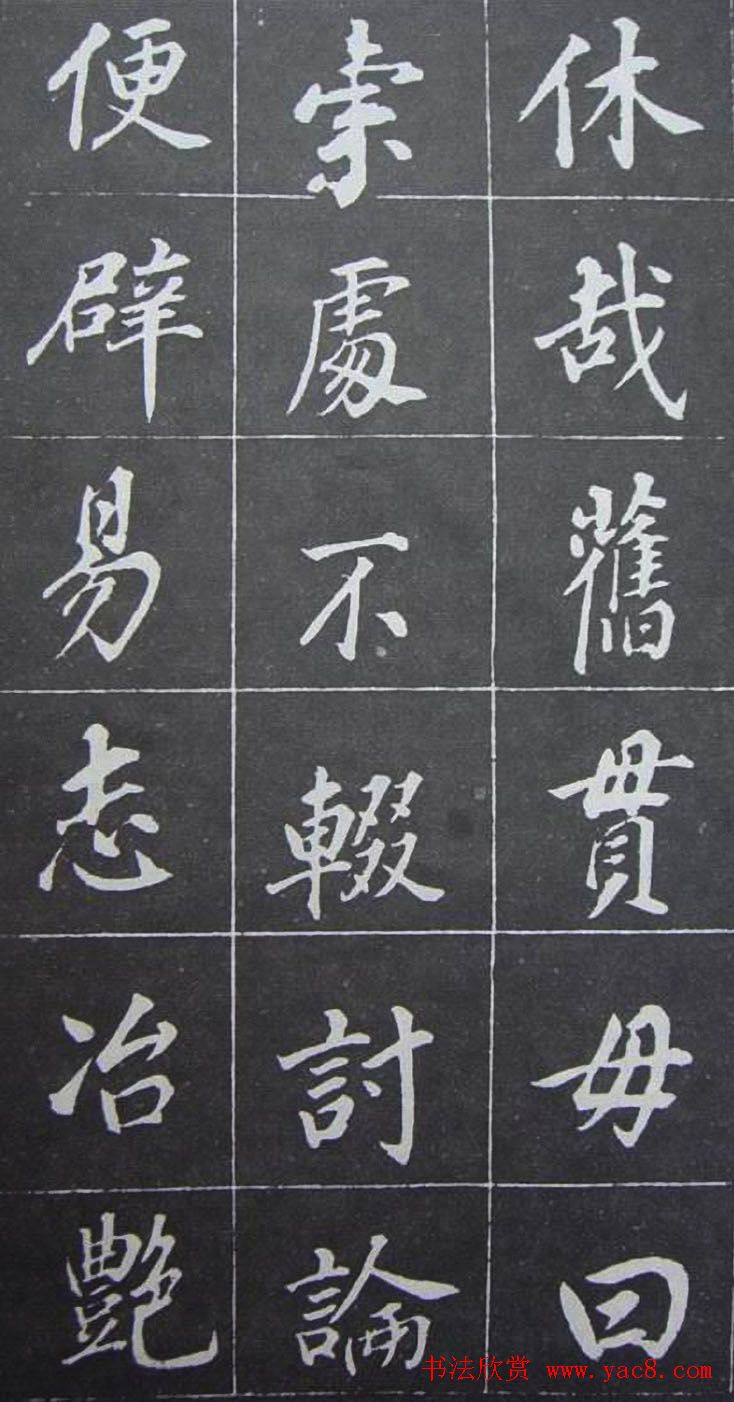 休哉舊貫毋曰
索處不輟討論
便辟易志冶艷
书法欣赏 www.yac8.com